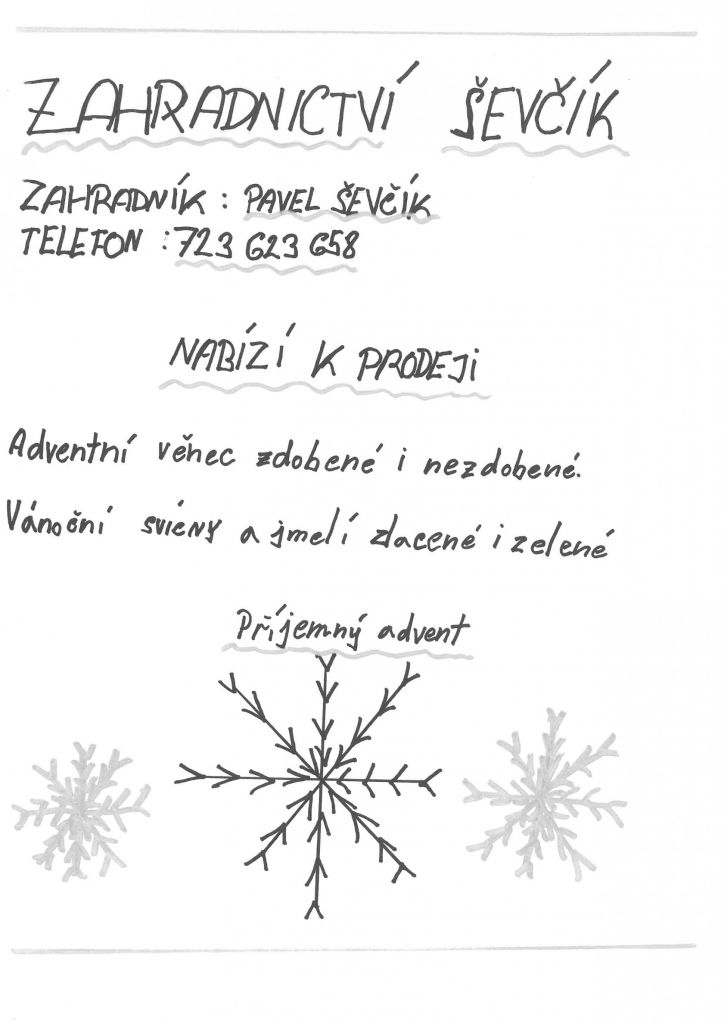 ZAHRADNICTVÍ ŠEVČÍK
ZAHRADNÍK : PAVEL ŠEVČÍK
TELEFON : 723 623 658
NABÍZÍ K PRODEJI
Adventní věnec zdobené i nezdobené.
Vánoční sviény a jmelí zlacené i zelené
Příjemný advent